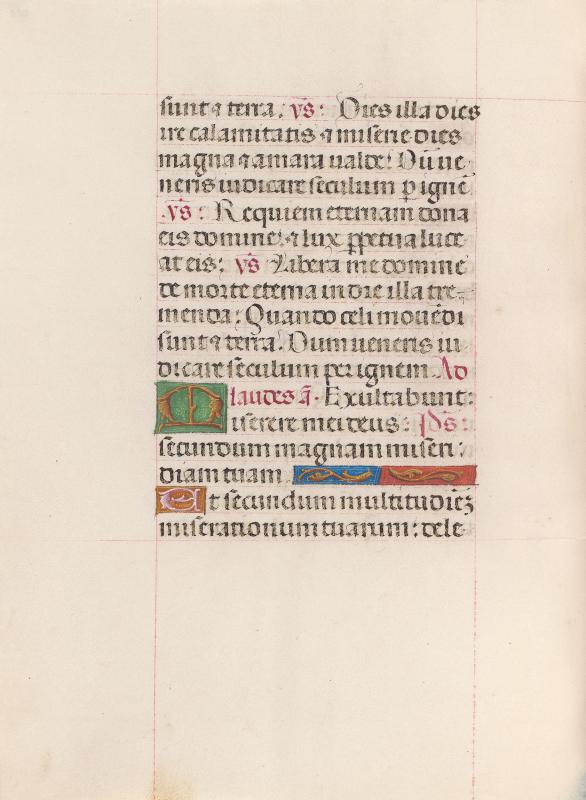 sunt ⁊ terra. v̄s: Dies illa dies
ire calamitatis ⁊ miserie dies
magna ⁊ amara ualde: Dū ue
neris iudicare seculum p ignē
.v̄s: Requiem eternam dona
eis domine: ⁊ lux ꝑpetua luce
at eis: v̄s Libera me domine
de morte eterna in die illa tre-
menda: Quando celi mouēdi
sunt ⁊ terra. Dum ueneris iu
dicare seculum per ignem. Ad
laudes ā. Exultabunt:
Miserere mei deus: p̄s:
secundum magnam miseri:
diam tuam
Et secundum multitudiēȝ
miserationum tuarum: dele-